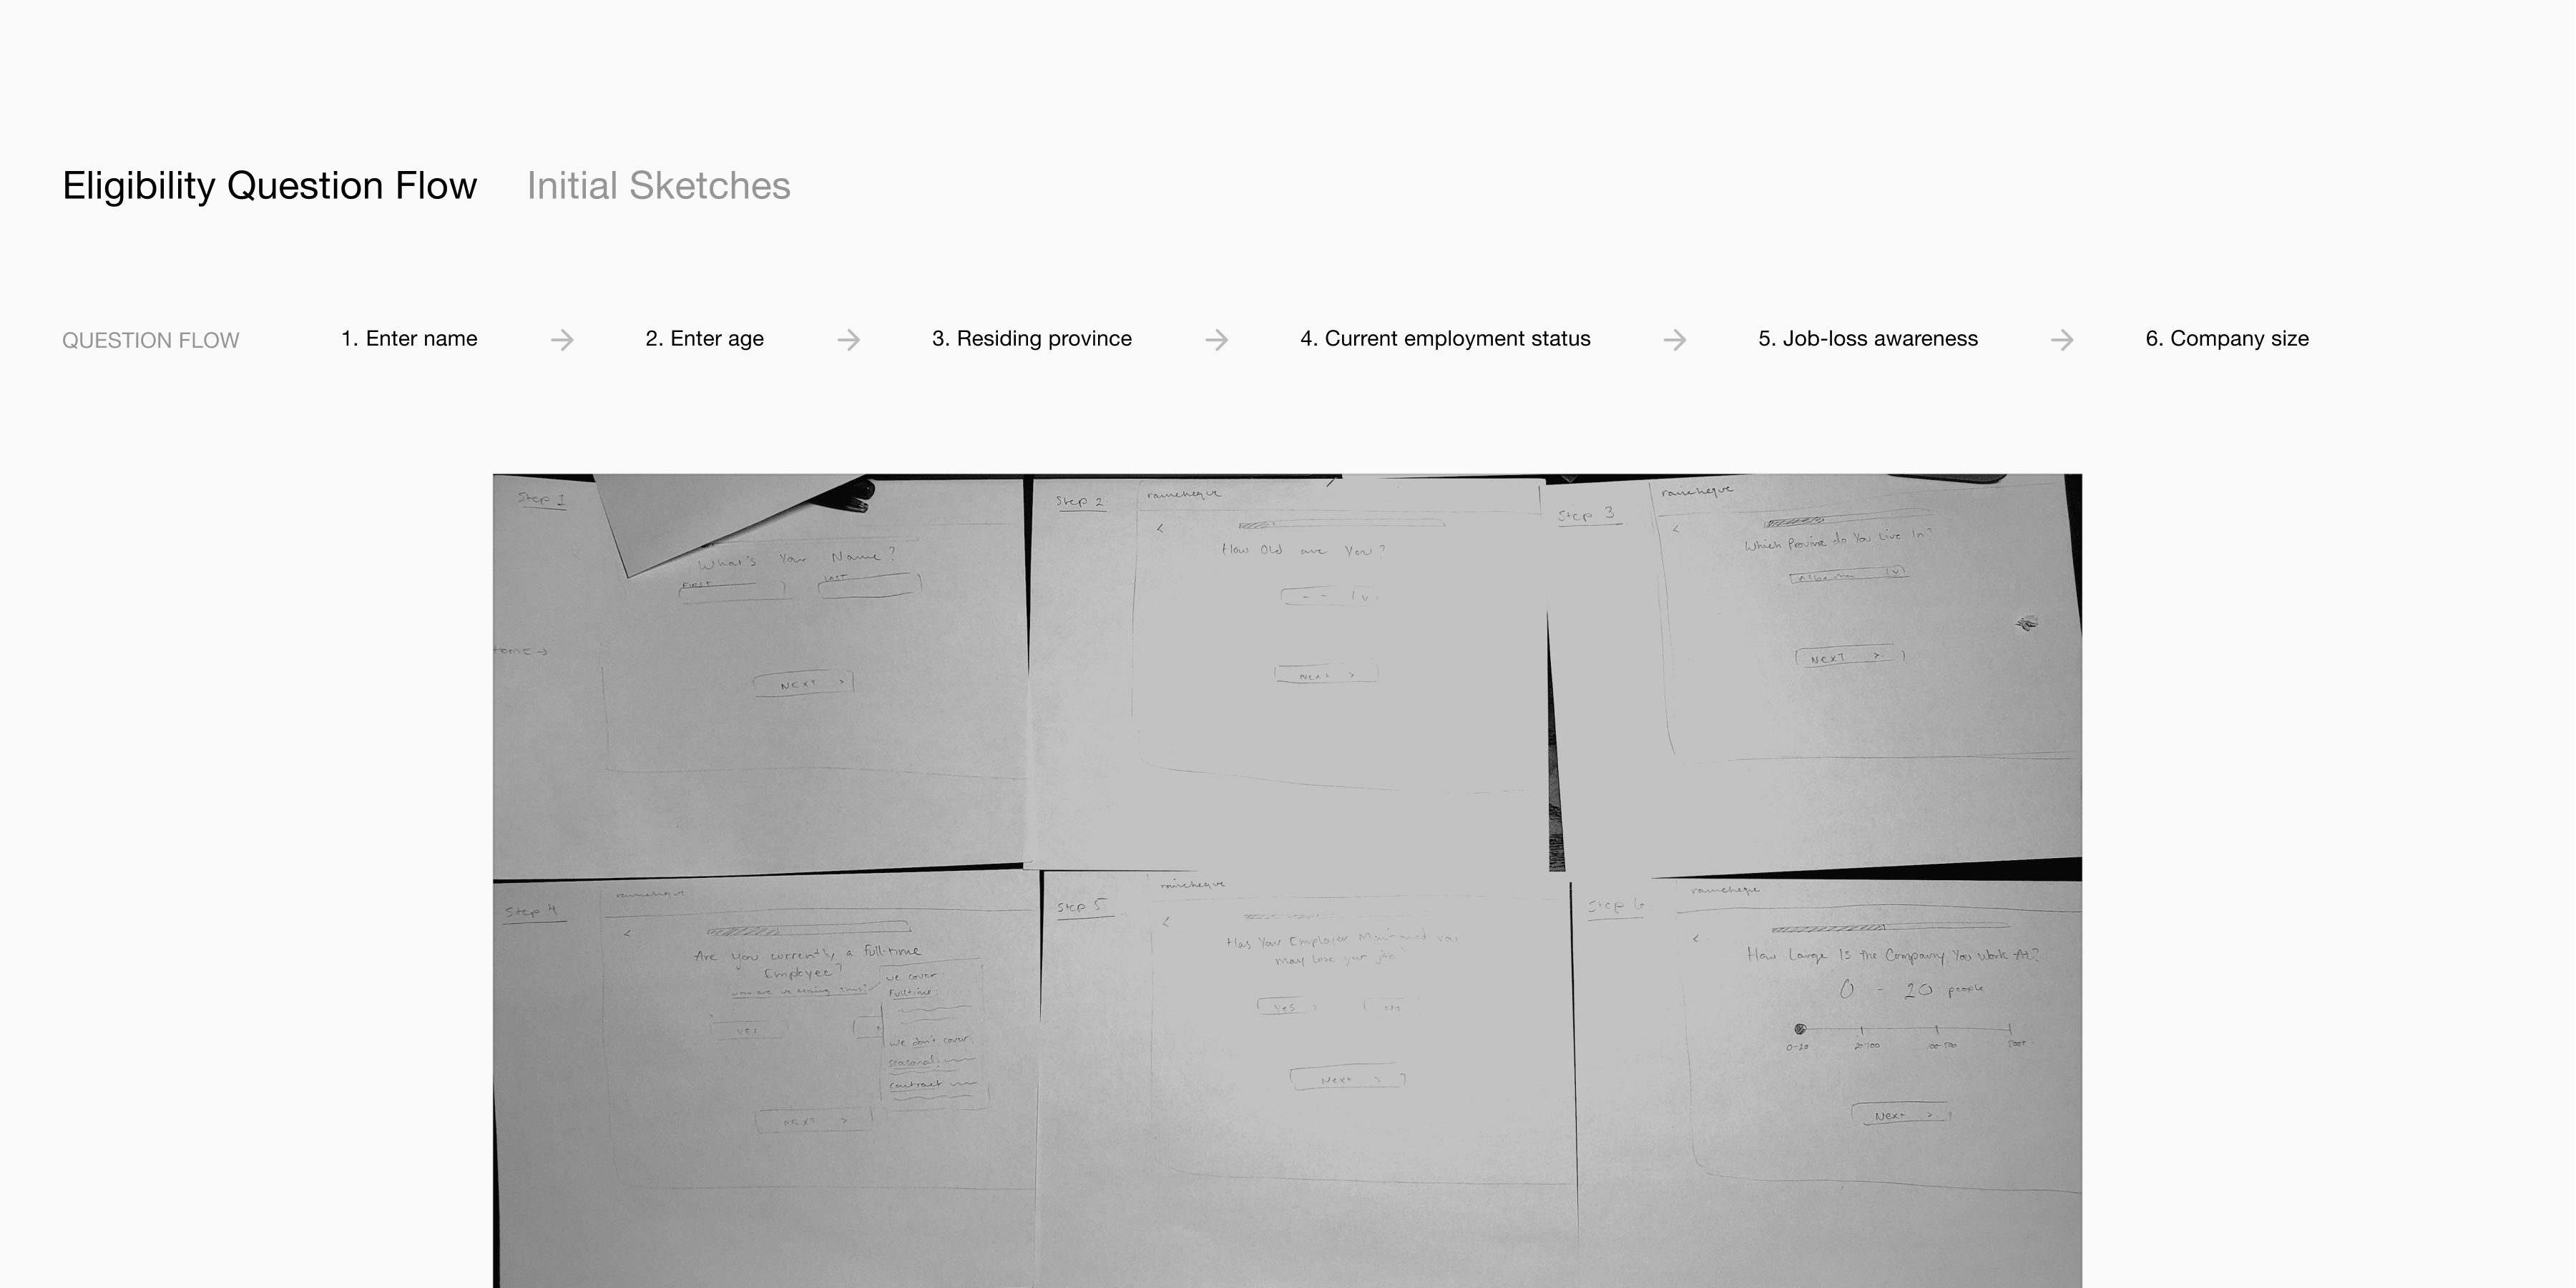 Eligibility Question Flow Initial Sketches
QUESTION FLOW 1. Enter name → 2. Enter age → 3. Residing province → 4. Current employment status → 5. Job-loss awareness → 6. Company size
Step 1
What's Your Name?
FIRST LAST
HOME →
NEXT >
Step 2
raincheque
<
How Old are You?
-- v
NEXT >
Step 3
raincheque
<
Which Province do You Live In?
Alberta v
NEXT >
Step 4
raincheque
<
Are you currently a full-time
Employee?
why are we asking this?
YES
we cover:
Fulltime:
we don't cover:
seasonal:
contract
NEXT >
Step 5
raincheque
<
Has Your Employer Mentioned you
may lose your job?
Yes No
Next >
Step 6
raincheque
<
How Large Is the Company You Work At?
0 - 20 people
0-20 20-100 100-500 500+
Next >